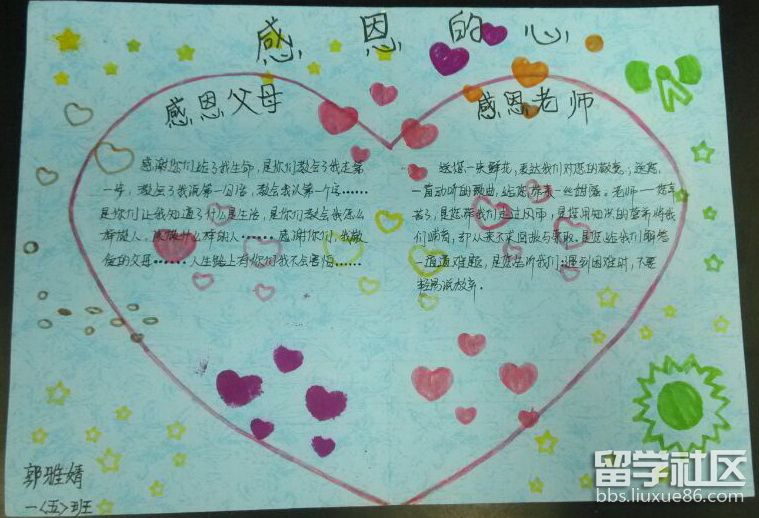 感恩的心
感恩父母
感谢你们给了我生命，是你们教会了我走第
一步，教会了我说第一句话，教会我认第一个字……
是你们让我知道了什么是生活，是你们教会我怎么
样做人，做什么样的人……感谢你们，我敬
爱的父母……人生路上有你们我不会害怕……
感恩老师
送您一束鲜花，表达我们对您的敬意，送您
一首动听的歌曲，给您带来一丝甜蜜。老师一一您辛
苦了，是您带我们走过风雨，是您用知识的营养将我
们哺育，却从来不求回报与索取。是您给我们解答
一道道难题，是您告诉我们：遇到困难时，不要
轻易说放弃。
郭雅婧
一〈五〉班
留学社区
bbs.liuxue86.com